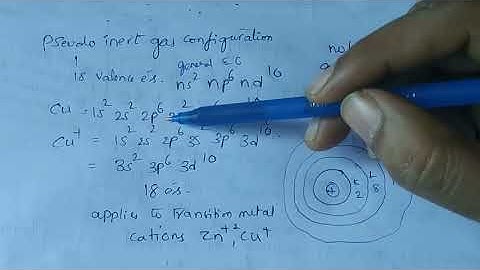 Pseudo inert gas configuration
general E C
18 valence e's. ns² np⁶ nd¹⁰
Cu = 1s² 2s² 2p⁶
Cu⁺ = 1s² 2s² 2p⁶ 3s² 3p⁶ 3d¹⁰
= 3s² 3p⁶ 3d¹⁰
18 es.
applies to Transition metal
cations Zn⁺², Cu⁺
no
+
K L
2 8